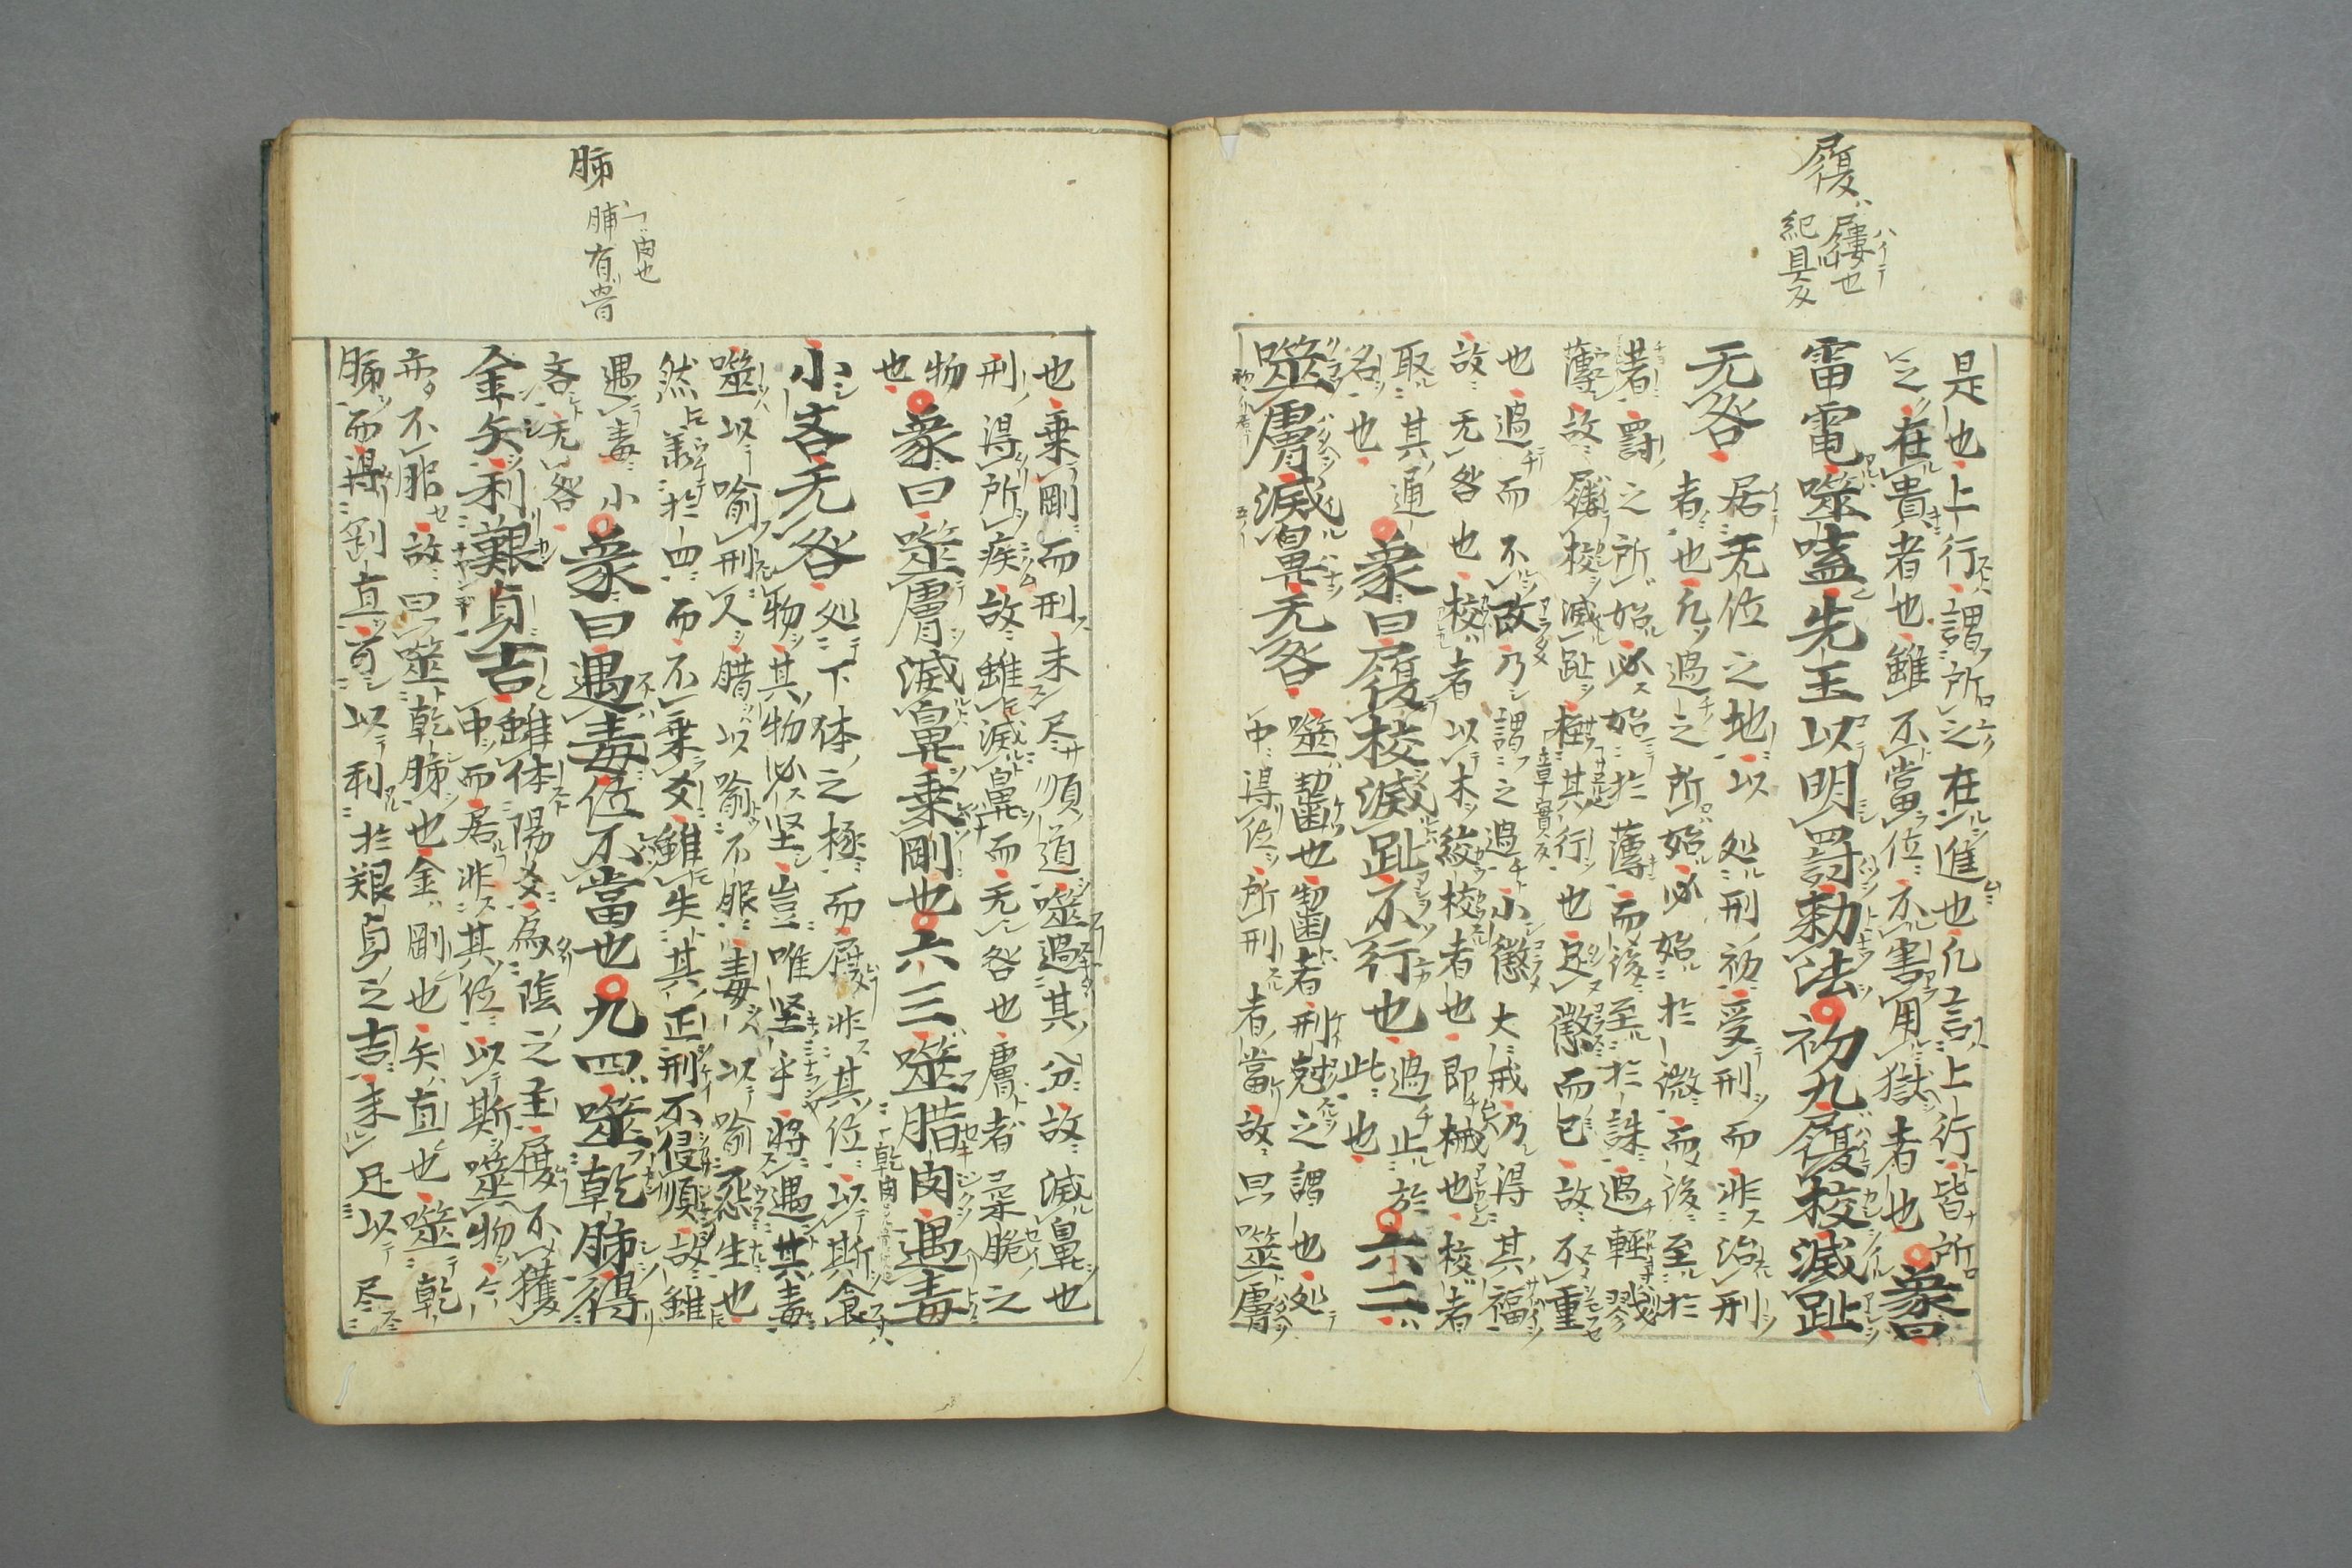 履
屨也
紀具反
是也上行謂所之在進也凡言上行皆所
之在貴者也雖不當位不害用獄者也象曰
雷電噬嗑先王以明罰勅法初九履校滅趾
无咎
居无位之地以処刑初受刑而非治刑
者也凡過之所始必始於微而後至於
著罰之所始必始於薄而後至於誅過輕戮
薄故屨校滅趾桎其行也足懲而已故不重
也過而不改乃謂之過小懲大戒乃得其福
故无咎也校者以木絞校者也即械也校者
取其通
名也
象曰履校滅趾不行也
過止於
此也
六二
噬膚滅鼻无咎
噬齧也齧者刑尅之謂也処
中得位所刑者當故曰噬膚
肺
脯有骨
肉也
也乗剛而刑未尽順道噬過其分故滅鼻也
刑得所疾故雖滅鼻而无咎也膚者柔脆之
物
也
象曰噬膚滅鼻乗剛也六三噬腊肉遇毒
小吝无咎
処下体之極而履非其位以斯食
物其物必坚豈唯坚乎將遇其毒
噬以喻刑人腊以喻不服毒以喻怨生也
然羕於四而不乗剛雖失其正刑不侵順故雖
遇毒小
吝无咎
象曰遇毒位不當也九四噬乾肺得
金矢利艱貞吉
雖体陽爻為陰之主履不獲
中而居非其位以斯噬物亦
不服故曰噬乾肺也金剛也矢直也噬乾
肺而得剛直可以利於艱貞之吉未足以尽